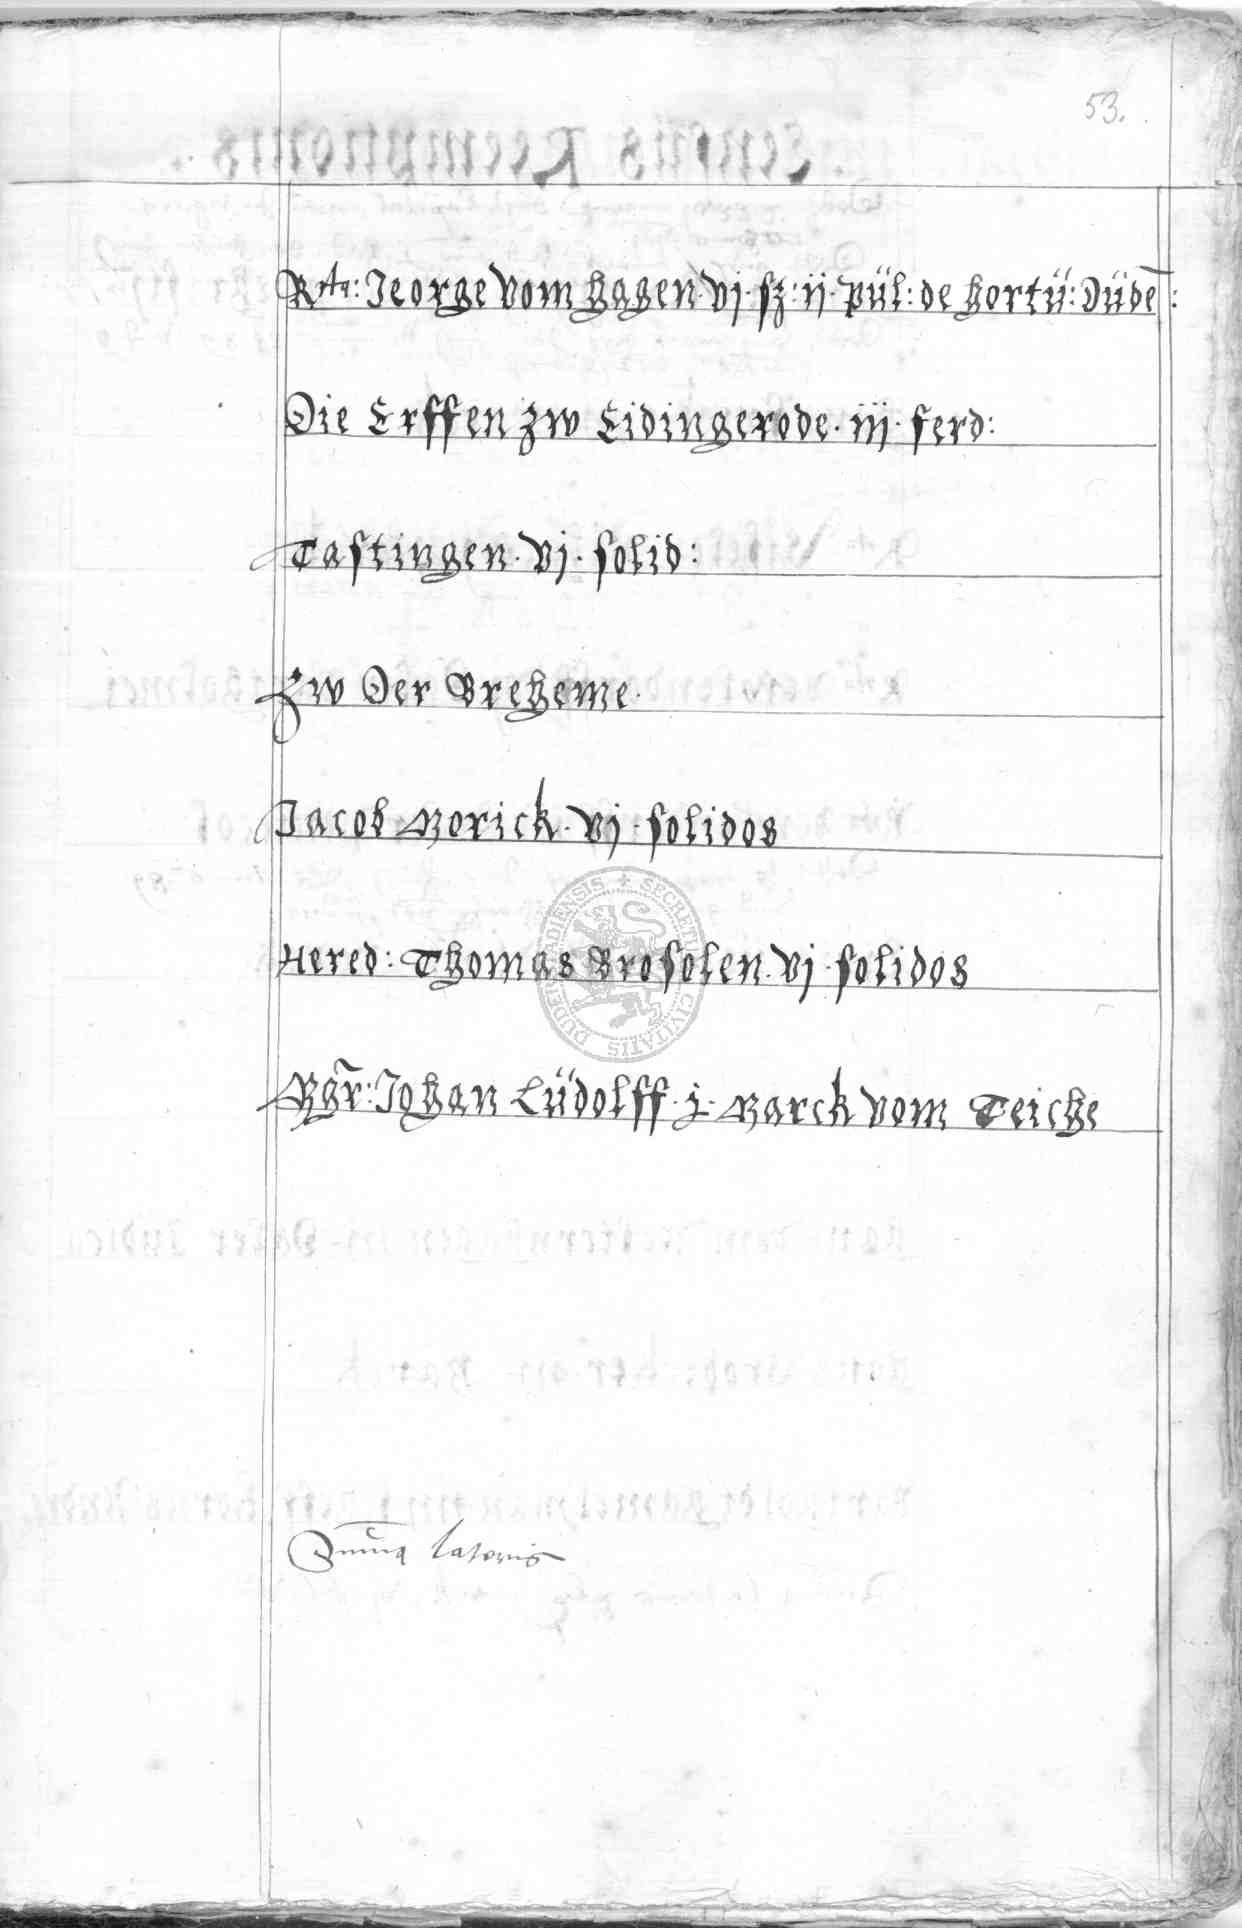 53.
Rta: Jeorge vom hagen · vj · sz: ij · pül: de hortü: Düde:
Die Erffen zw Eidingerode · iij · ferd:
Tastingen · vj · solid:
Zw Der Breheme ·
Jacob Morick · vj · solidos
Hered: Thomas Brosolen · vj · solidos
Mgr: Johan Lüdolff · j · Marck vom Teiche
SECRETU CIVITATIS DUDERSTADIENSIS
Suma lateris